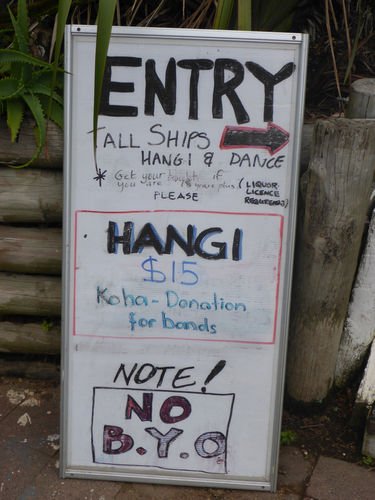 ENTRY
TALL SHIPS
HANGI & DANCE
* Get your if
you are 18 years plus (LIQUOR
LICENCE
REQUIREMENT)
PLEASE
HANGI
$15
Koha - Donation
for bands
NOTE!
NO
B.Y.O